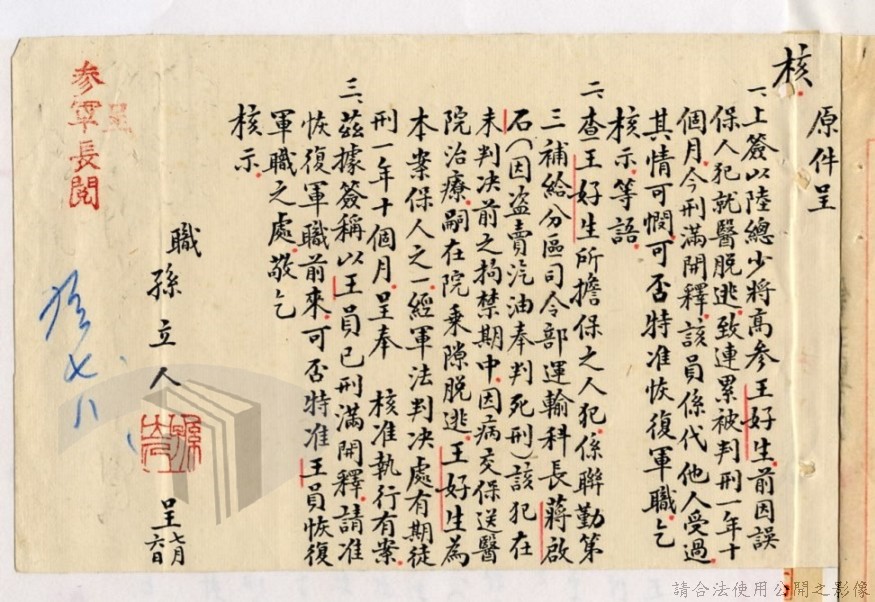 原件呈
核
一、上簽以陸總少將高參王好生前因誤
保人犯就醫脫逃致連累被判刑一年十
個月今刑滿開釋該員係代他人受過
其情可憫可否特准恢復軍職乞
核示等語
二、查王好生所擔保之人犯係聯勤第
三補給分區司令部運輸科長蔣啟
石(因盜賣汽油奉判死刑)該犯在
未判决前之拘禁期中因病交保送醫
院治療嗣在院乘隙脫逃王好生為
本案保人之一經軍法判决處有期徒
刑一年十個月呈奉 核准執行有案
三、茲據簽稱以王員已刑滿開釋請准
恢復軍職前來可否特准王員恢復
軍職之處敬乞
核示
職 孫立人 呈 七月六日
呈
參軍長閱
七八
請合法使用公開之影像